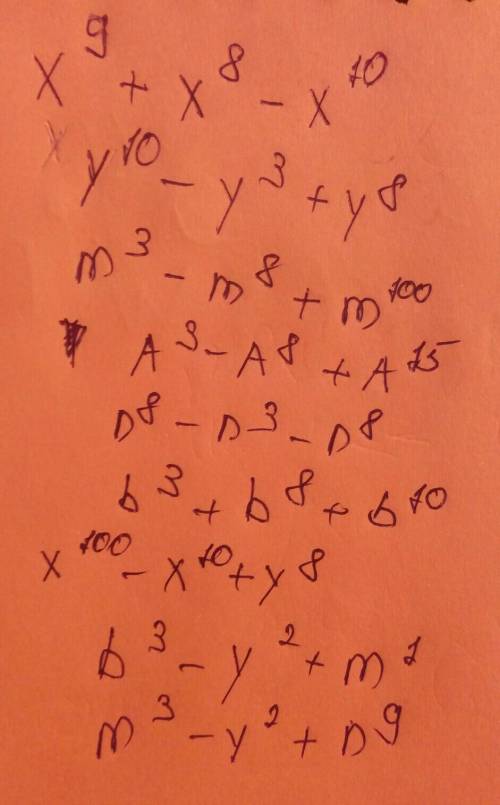 x⁹ + x⁸ - x¹⁰
y¹⁰ - y³ + y⁸
m³ - m⁸ + m¹⁰⁰
A³ - A⁸ + A¹⁵
D⁸ - D³ - D⁸
b³ + b⁸ + b¹⁰
x¹⁰⁰ - x¹⁰ + y⁸
b³ - y² + m¹
m³ - y² + D⁹